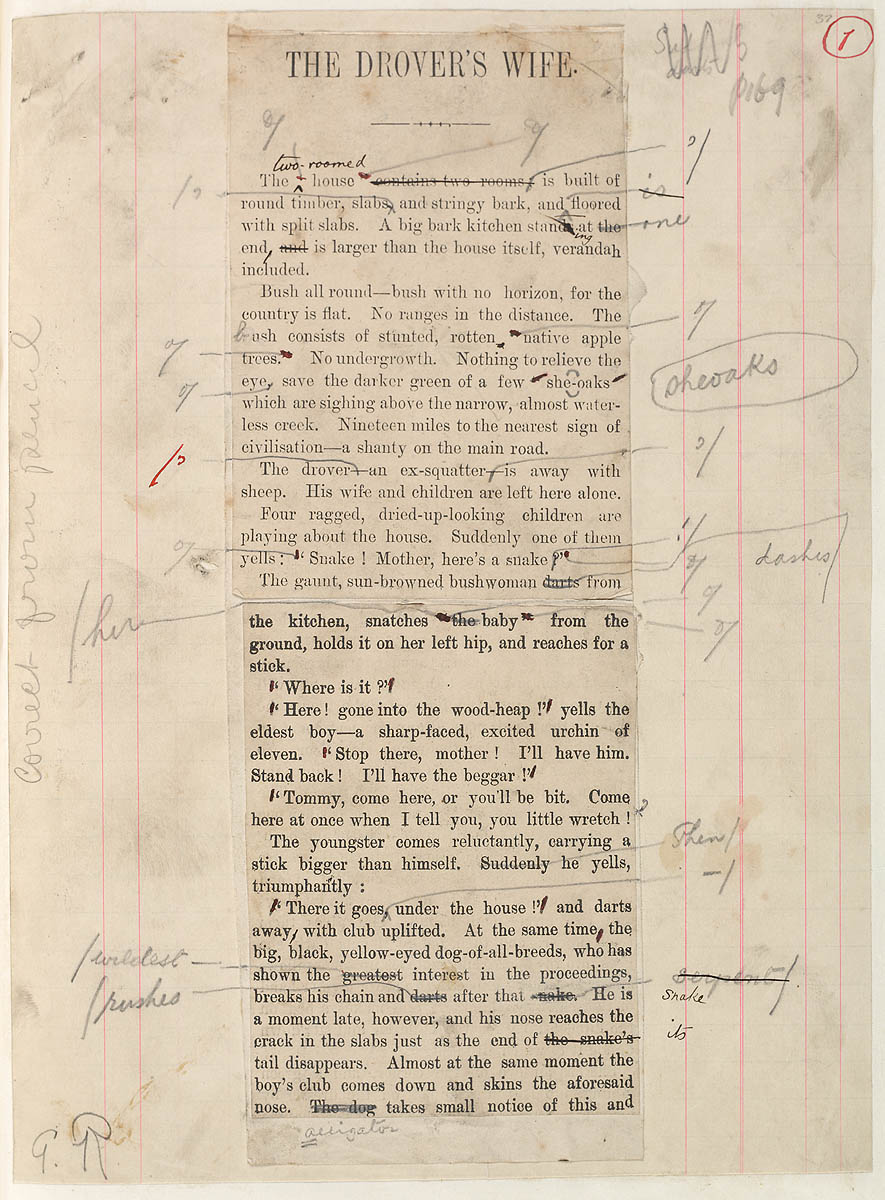 1
p 169
THE DROVER'S WIFE.
two-roomed
The house contains two rooms, is built of
is
round timber, slabs, and stringy bark, and floored
with split slabs. A big bark kitchen stands at the
one
ing
end, and is larger than the house itself, verandah
included.
Bush all round—bush with no horizon, for the
country is flat. No ranges in the distance. The
bush consists of stunted, rotten "native apple
trees." No undergrowth. Nothing to relieve the
eye, save the darker green of a few "she-oaks"
sheoaks
which are sighing above the narrow, almost water-
less creek. Nineteen miles to the nearest sign of
civilisation—a shanty on the main road.
The drover—an ex-squatter—is away with
sheep. His wife and children are left here alone.
Four ragged, dried-up-looking children are
playing about the house. Suddenly one of them
yells: "Snake! Mother, here's a snake!"
dashes
The gaunt, sun-browned bushwoman darts from
her
the kitchen, snatches the baby from the
ground, holds it on her left hip, and reaches for a
stick.
"Where is it?"
"Here! gone into the wood-heap!" yells the
eldest boy—a sharp-faced, excited urchin of
eleven. "Stop there, mother! I'll have him.
Stand back! I'll have the beggar!"
"Tommy, come here, or you'll be bit. Come
here at once when I tell you, you little wretch!
The youngster comes reluctantly, carrying a
Then
stick bigger than himself. Suddenly he yells,
triumphantly:
"There it goes, under the house!" and darts
away, with club uplifted. At the same time, the
big, black, yellow-eyed dog-of-all-breeds, who has
wildest
shown the greatest interest in the proceedings,
serpent
rushes
breaks his chain and darts after that snake. He is
snake
a moment late, however, and his nose reaches the
crack in the slabs just as the end of the snake's
its
tail disappears. Almost at the same moment the
boy's club comes down and skins the aforesaid
nose. The dog takes small notice of this and
alligator
Correct from pencil
G. R